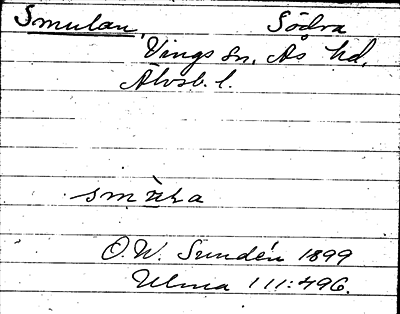 Smulan, Södra
Vings sn, Ås hd,
Älvsb. l.
O.W. Sundén 1899
Ulma 111:496.